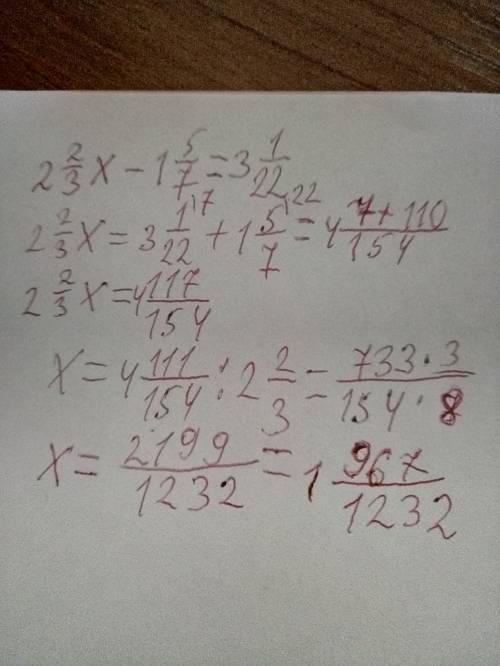 2 2/3 x - 1 5/7 = 3 1/22
2 2/3 x = 3 1/22 ¹⁷ + 1 5/7 ¹²² = 4 7+110/154
2 2/3 x = 4 117/154
x = 4 111/154 : 2 2/3 = 733·3/154·8
x = 2199/1232 = 1 967/1232